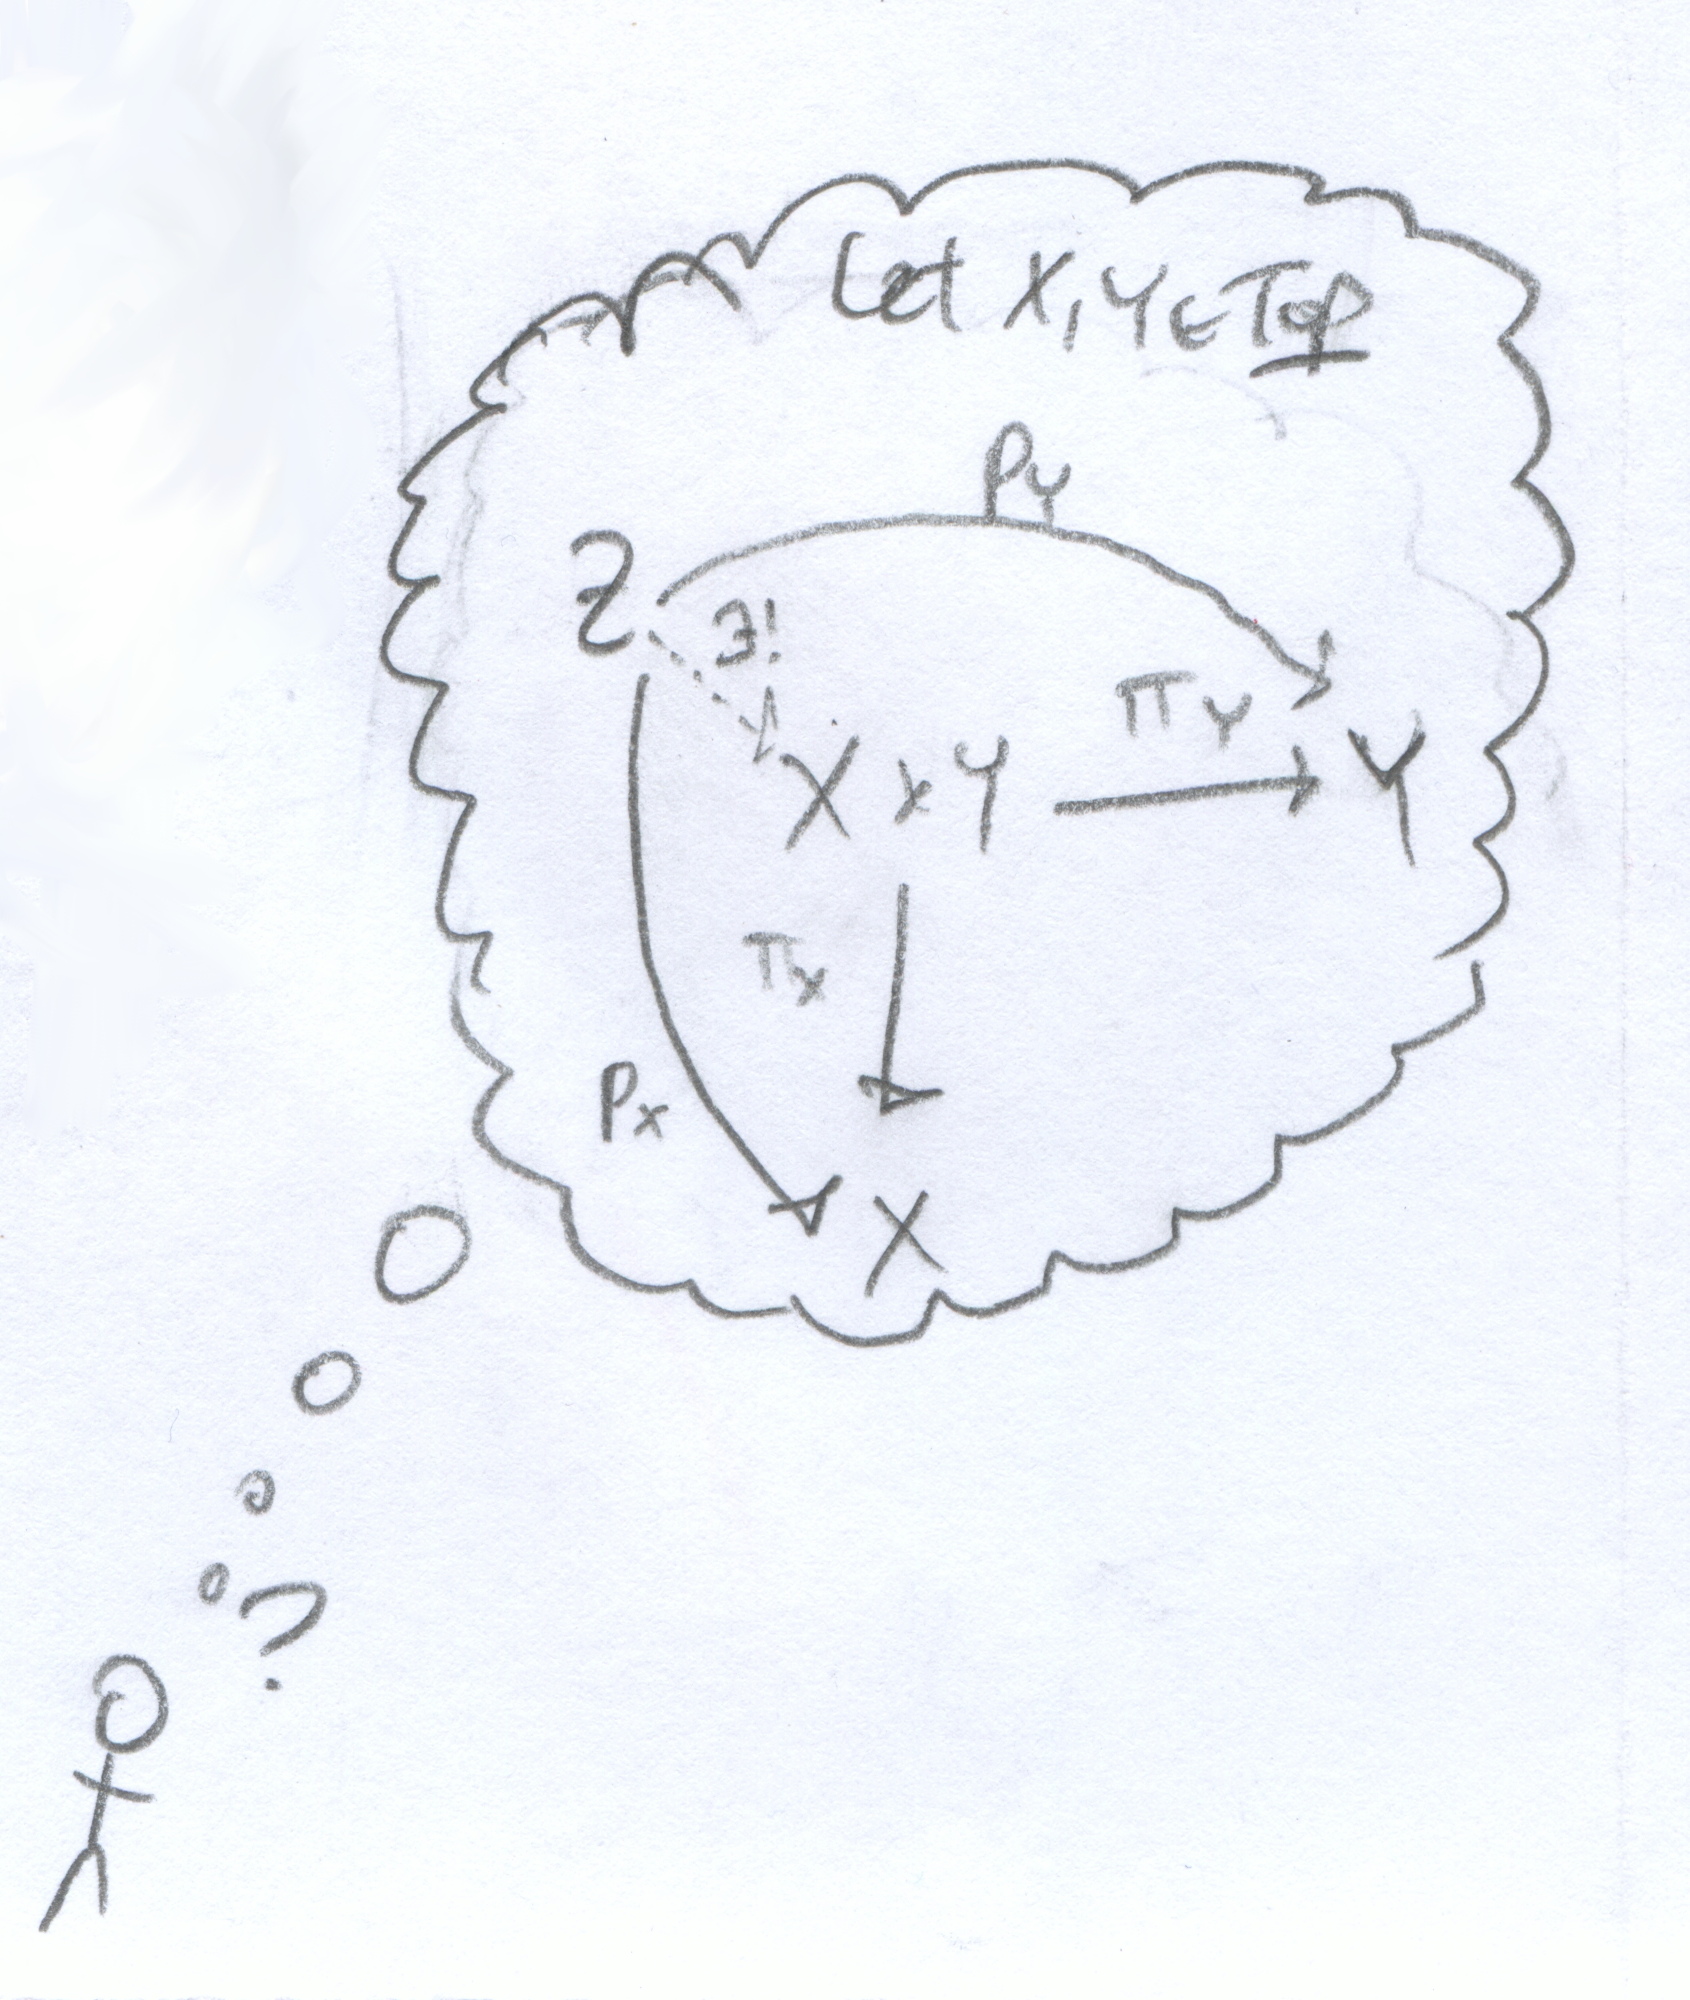 Let X, Y ∈ Top
P_Y
Z
∃!
π_Y
X × Y
Y
π_X
P_X
X
?